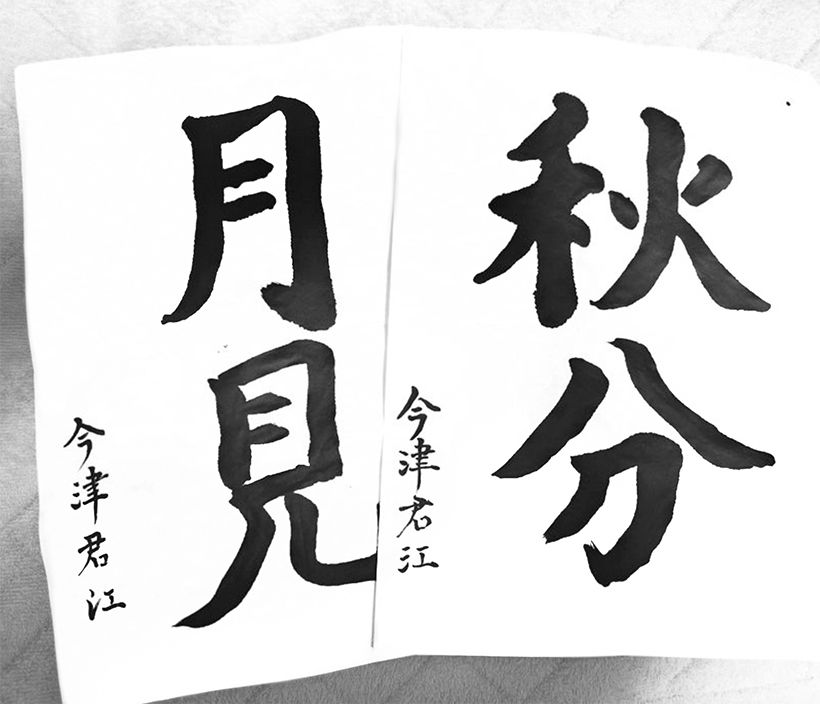 秋分
今津君江
月見
今津君江